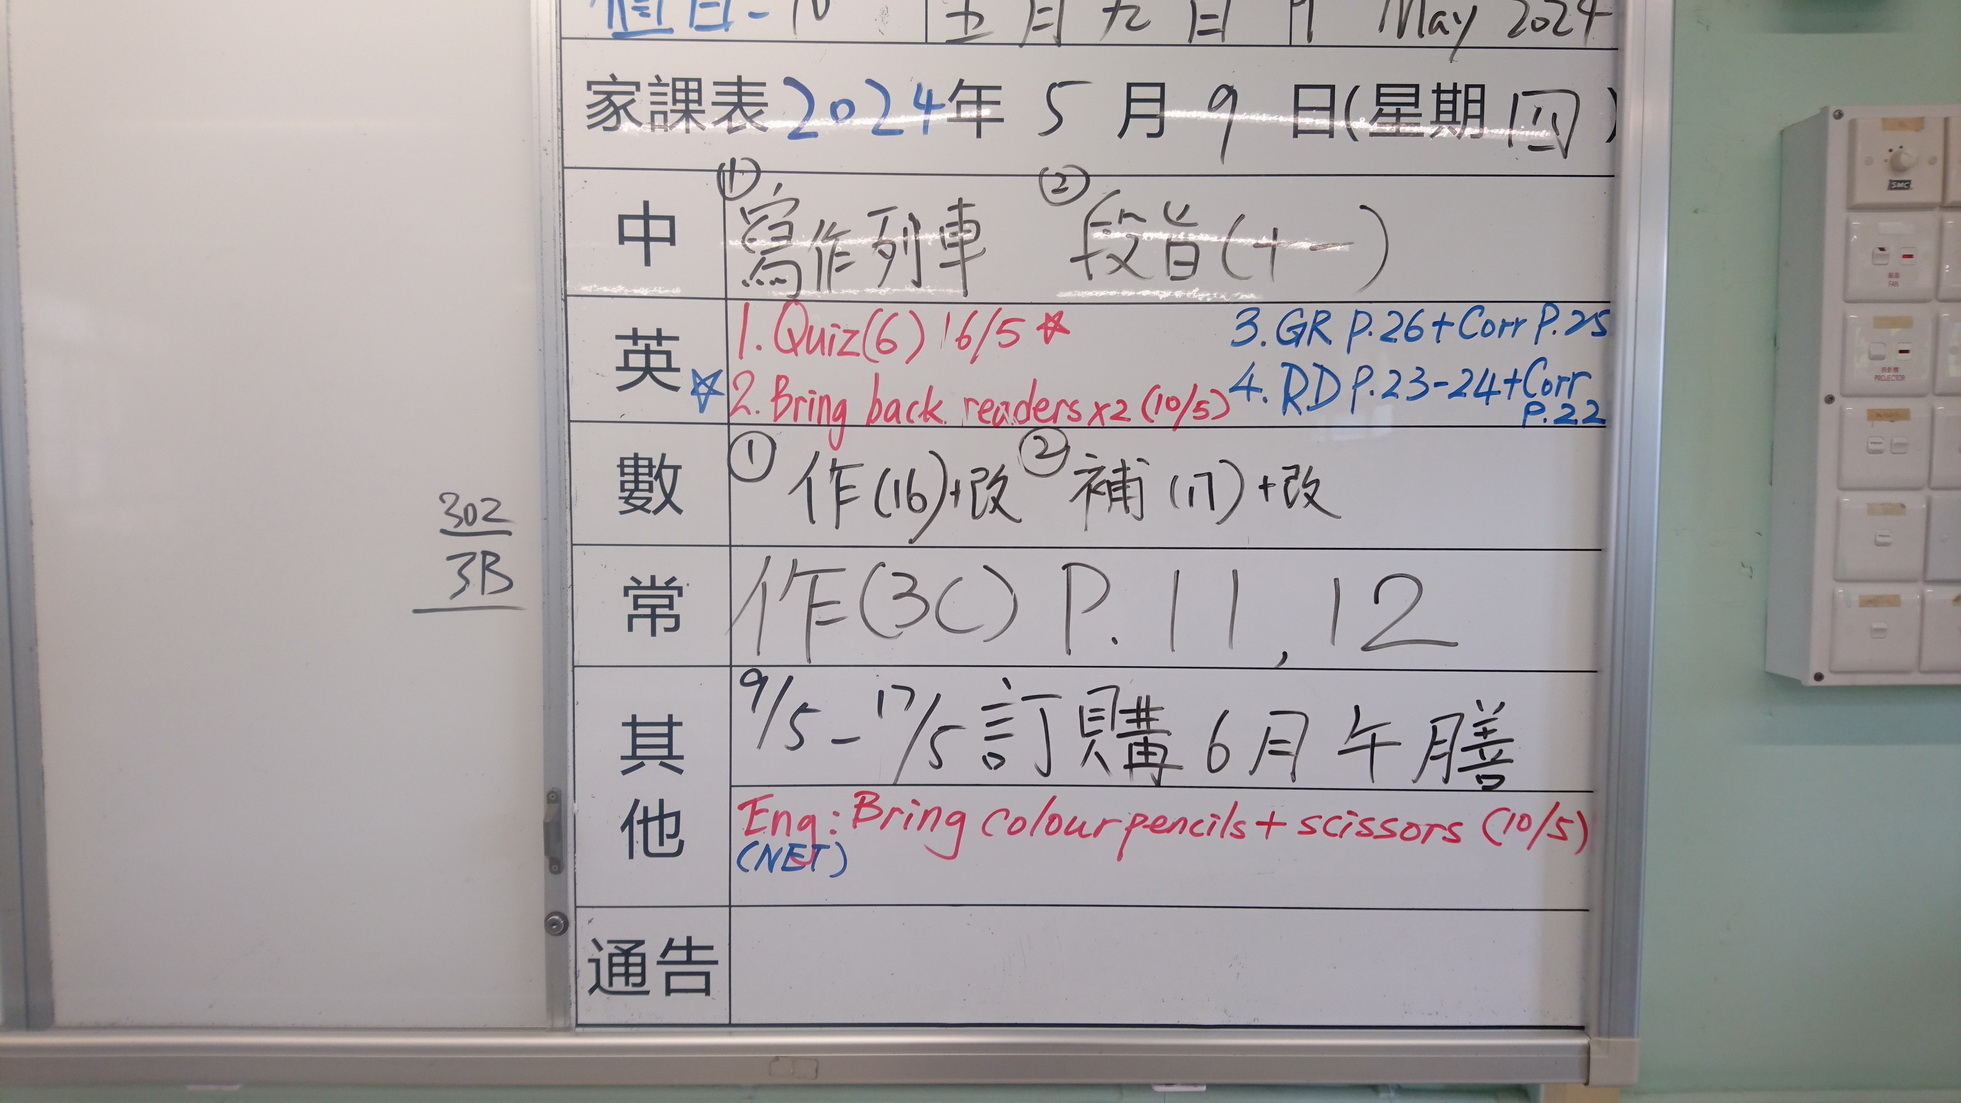 值日-10 五月九日 9 May 2024
家課表 2024年 5 月 9 日(星期四)
中 ① 寫作列車 ② 段旨(十一)
英 1. Quiz(6) 16/5 ☆ 3. GR P.26+Corr P.25
☆ 2. Bring back readers x2 (10/5) 4. RD P.23-24+Corr
P.22
數 ① 作(16)+改 ② 補(17)+改
302
3B
常 作(3C) P.11,12
其他 9/5-17/5 訂購6月午膳
Eng: Bring colour pencils + scissors (10/5)
(NET)
通告
SMC
FAN
PROJECTOR